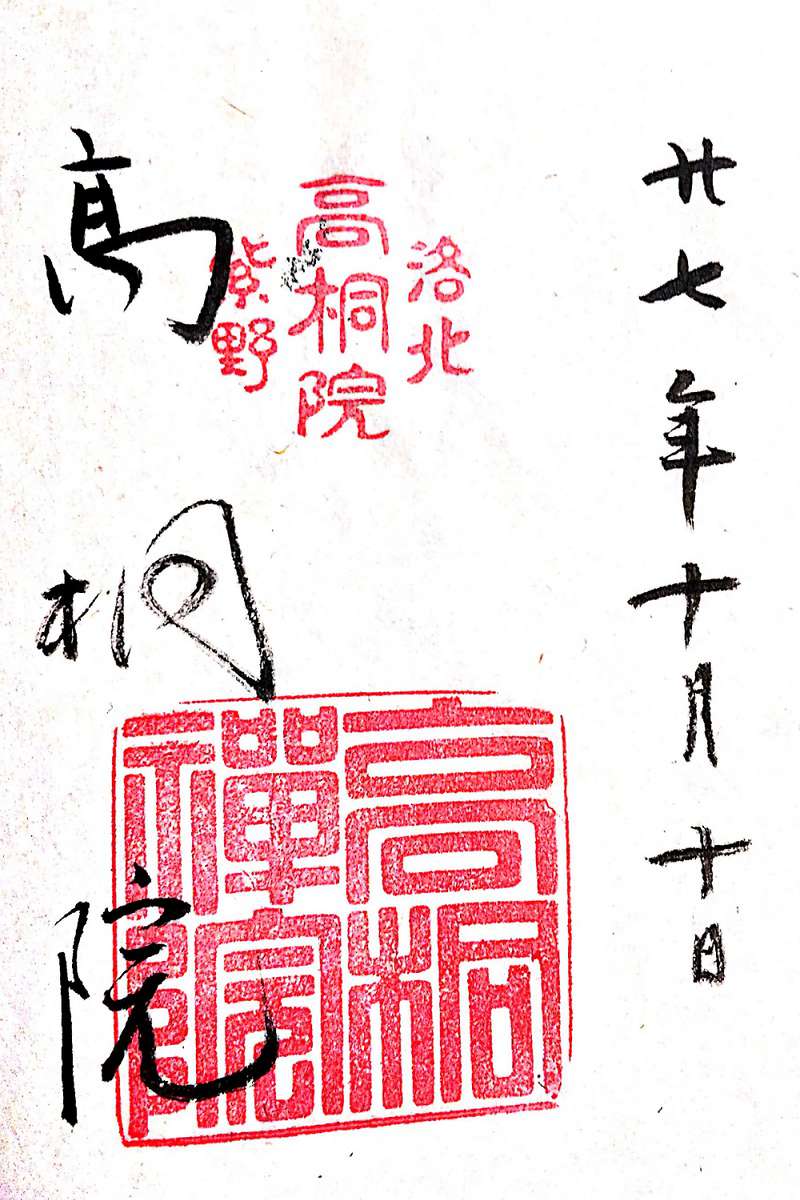 廿七年十月十日
洛北
高桐院
紫野
高桐院
高桐
禅院